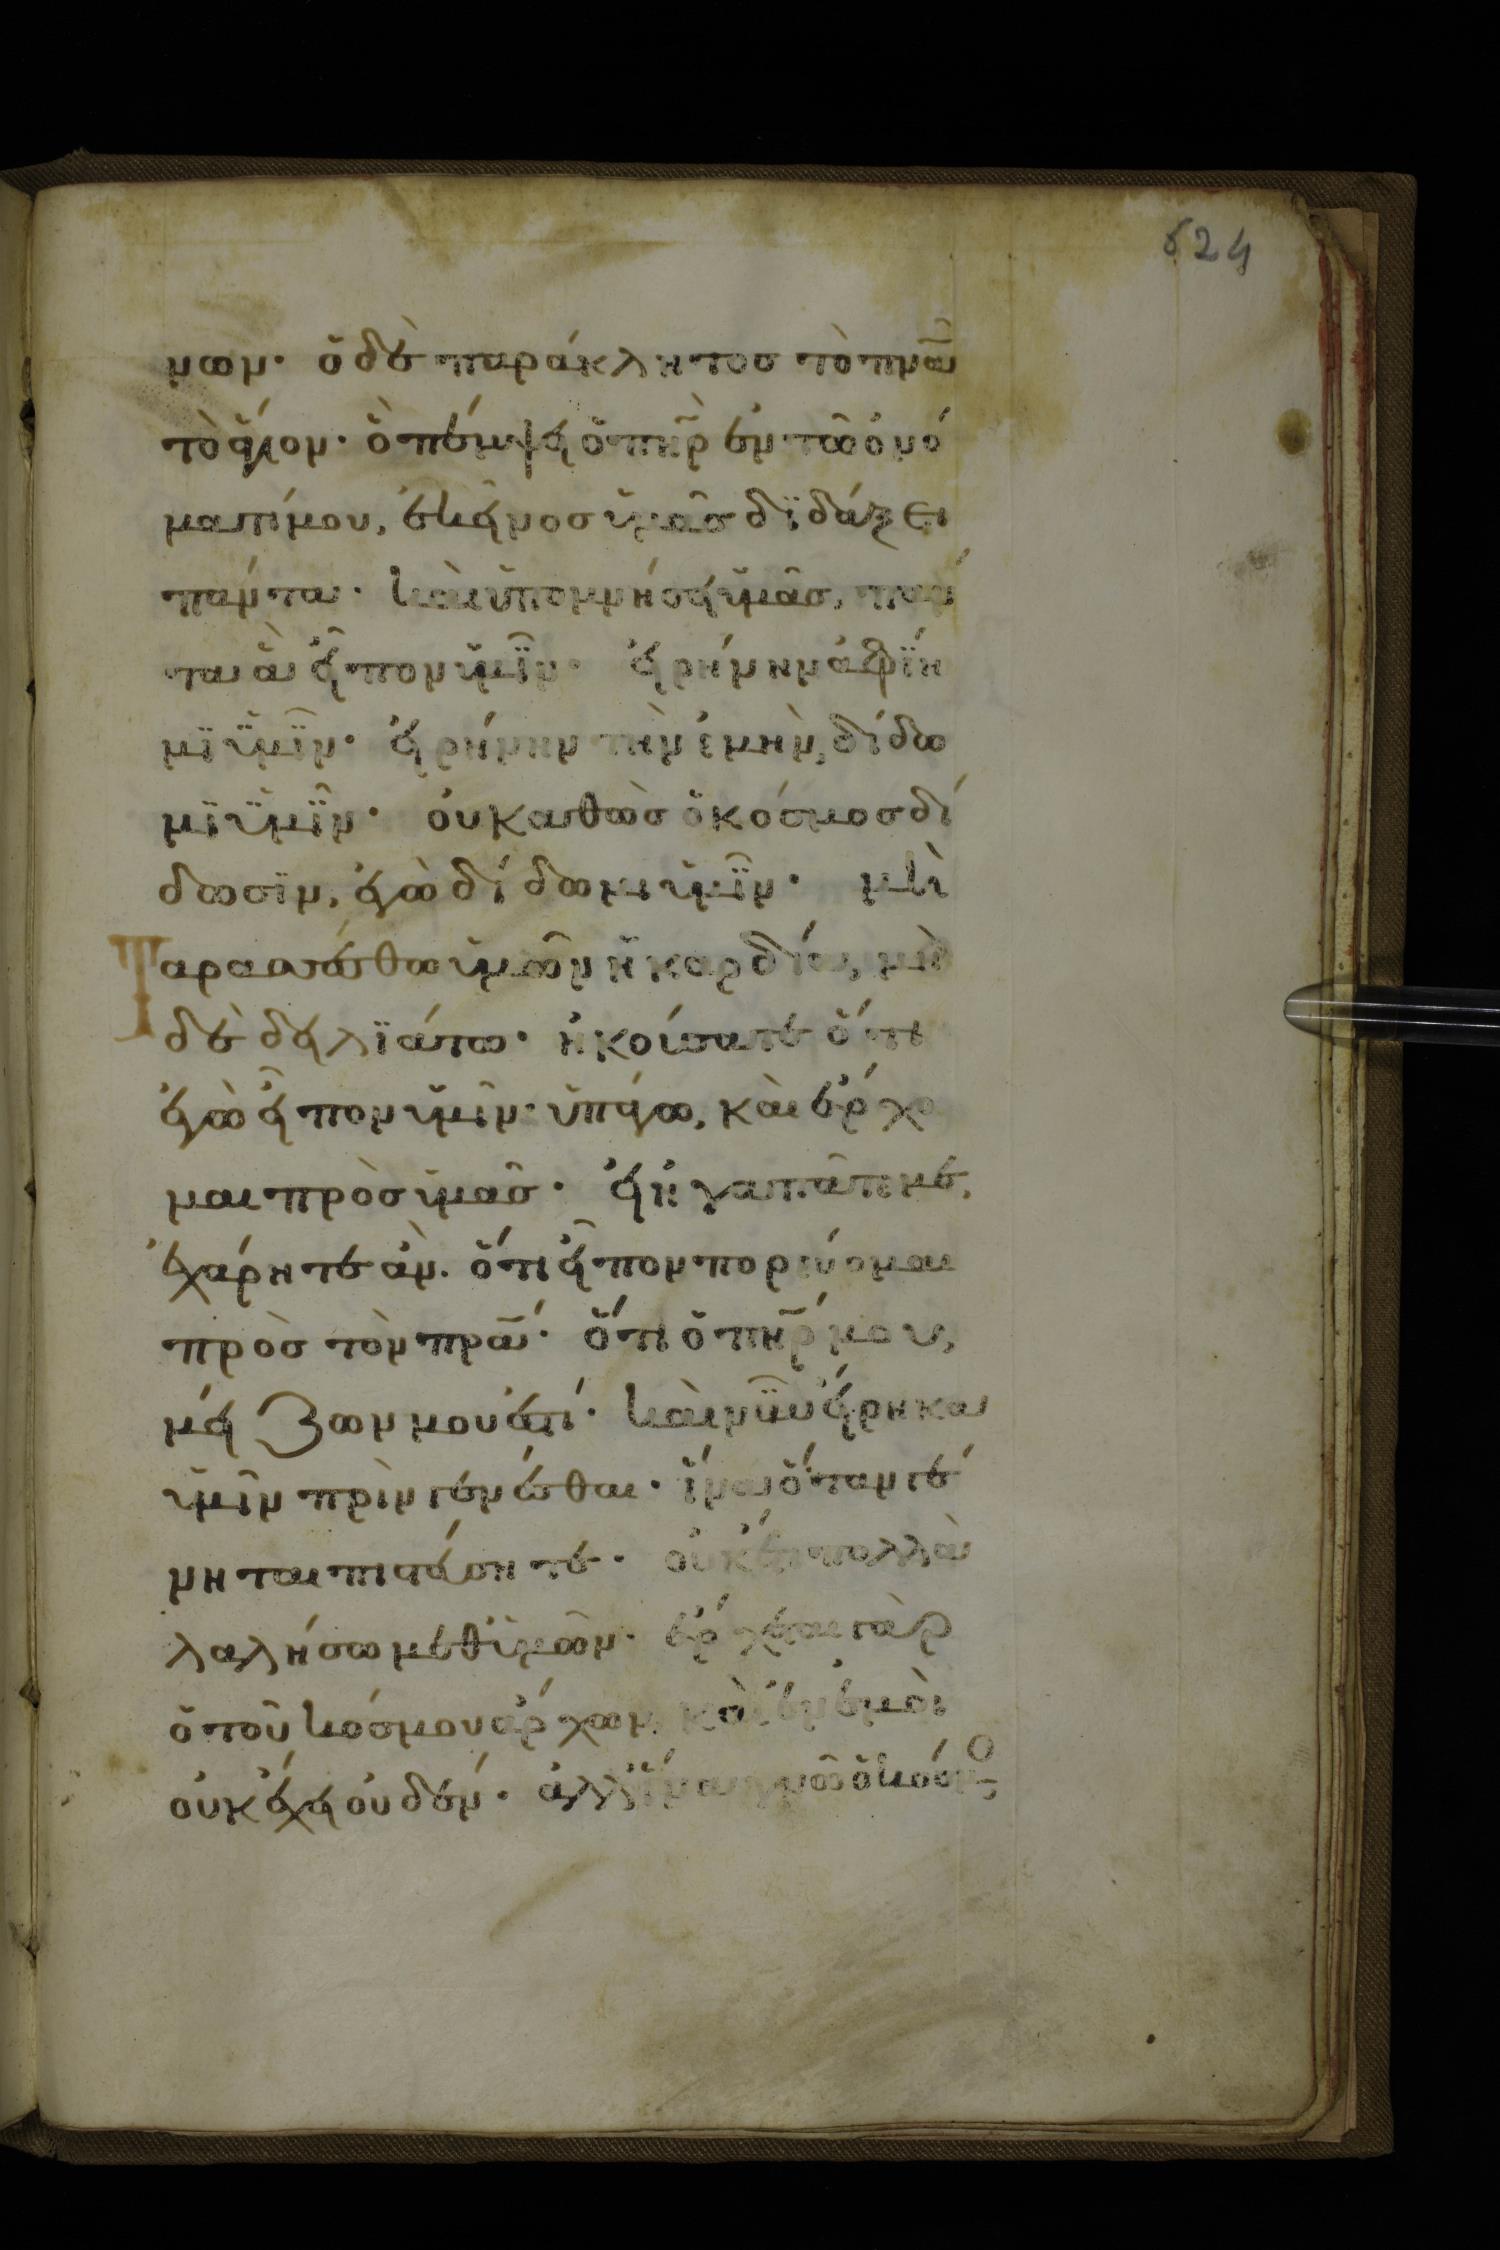 624
νων· ὁ δὲ παράκλητος τὸ πνᾶ
τὸ ἅγιον· ὃ πέμψει ὁ πηρ ἐν τῶ ὀνό
ματί μου, ἐκεῖνος ὑμᾶς διδάξει
πάντα· καὶ ὑπομνήσει ὑμᾶς, πάν
τα ἃ εἶπον ὑμῖν· εἰρήνην ἀφίη
μι ὑμῖν· εἰρήνην τὴν ἐμὴν, δίδω
μι ὑμῖν· οὐ καθὼς ὁ κόσμος δί
δωσιν, ἐγὼ δίδωμι ὑμῖν· μὴ
Ταρασσέσθω ὑμῶν ἡ καρδία, μη
δὲ δειλιάτω· ἠκούσατε ὅτι
ἐγὼ εἶπον ὑμῖν· ὑπάγω, καὶ ἔρχο
μαι πρὸς ὑμᾶς· εἰ ἠγαπᾶτε μέ,
ἐχάρητε ἂν. ὅτι εἶπον πορεύομαι
πρὸς τὸν πρα· ὅτι ὁ πηρ μου,
μείζων μου ἐστί· καὶ νῦν εἴρηκα
ὑμῖν πρὶν γενέσθαι· ἵνα ὅταν γέ
νηται πιστεύσητε· οὐκέτι πολλὰ
λαλήσω μεθ ὑμῶν· ἔρχεται γὰρ
ὁ τοῦ κόσμου ἄρχων, καὶ ἐν ἐμοὶ
οὐκ ἔχει οὐδέν· ἀλλ ἵνα γνῶ ὁ κόσμος